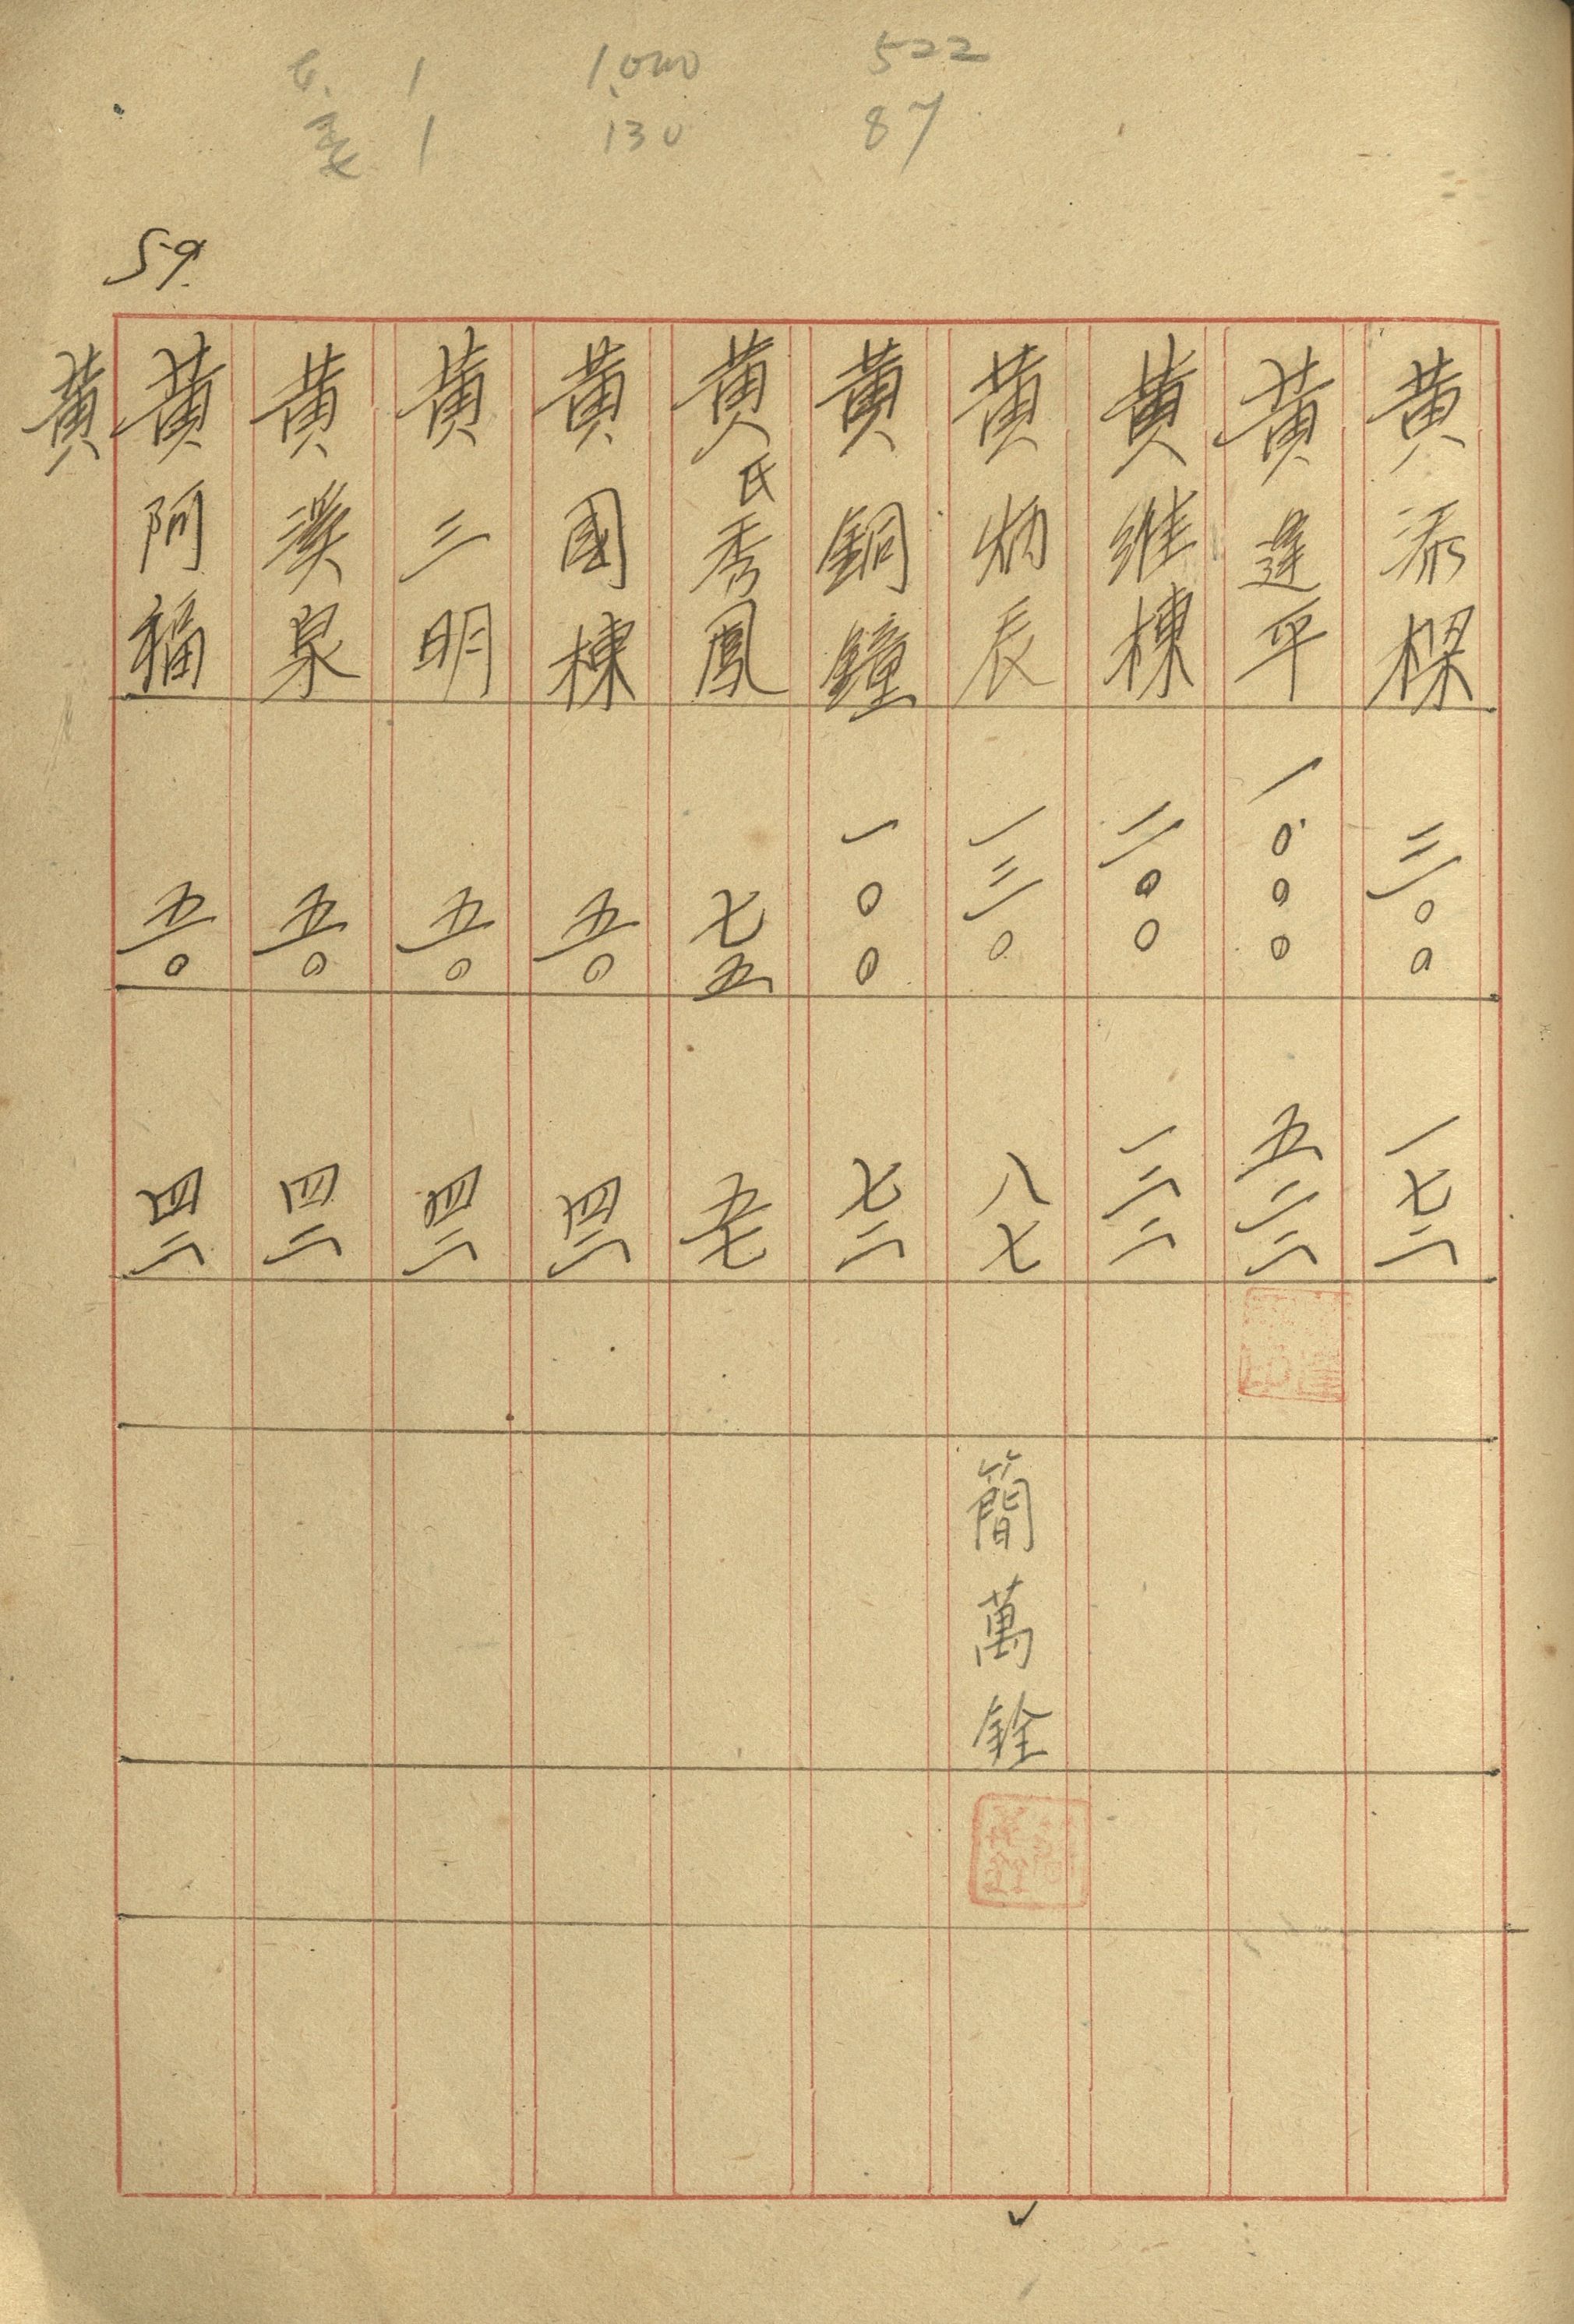 1 1,000 522
委 1 130 87
59.
黄添樑 三〇〇 一七二
黄逢平 一〇〇〇 五二二
黄維棟 二〇〇 一二二
黄炳辰 一三〇 八七 簡萬銓
黄銅鐘 一〇〇 七二
黄氏秀鳳 七五 五七
黄國棟 五〇 四二
黄三明 五〇 四二
黄泉 五〇 四二
黄阿福 五〇 四二
黄